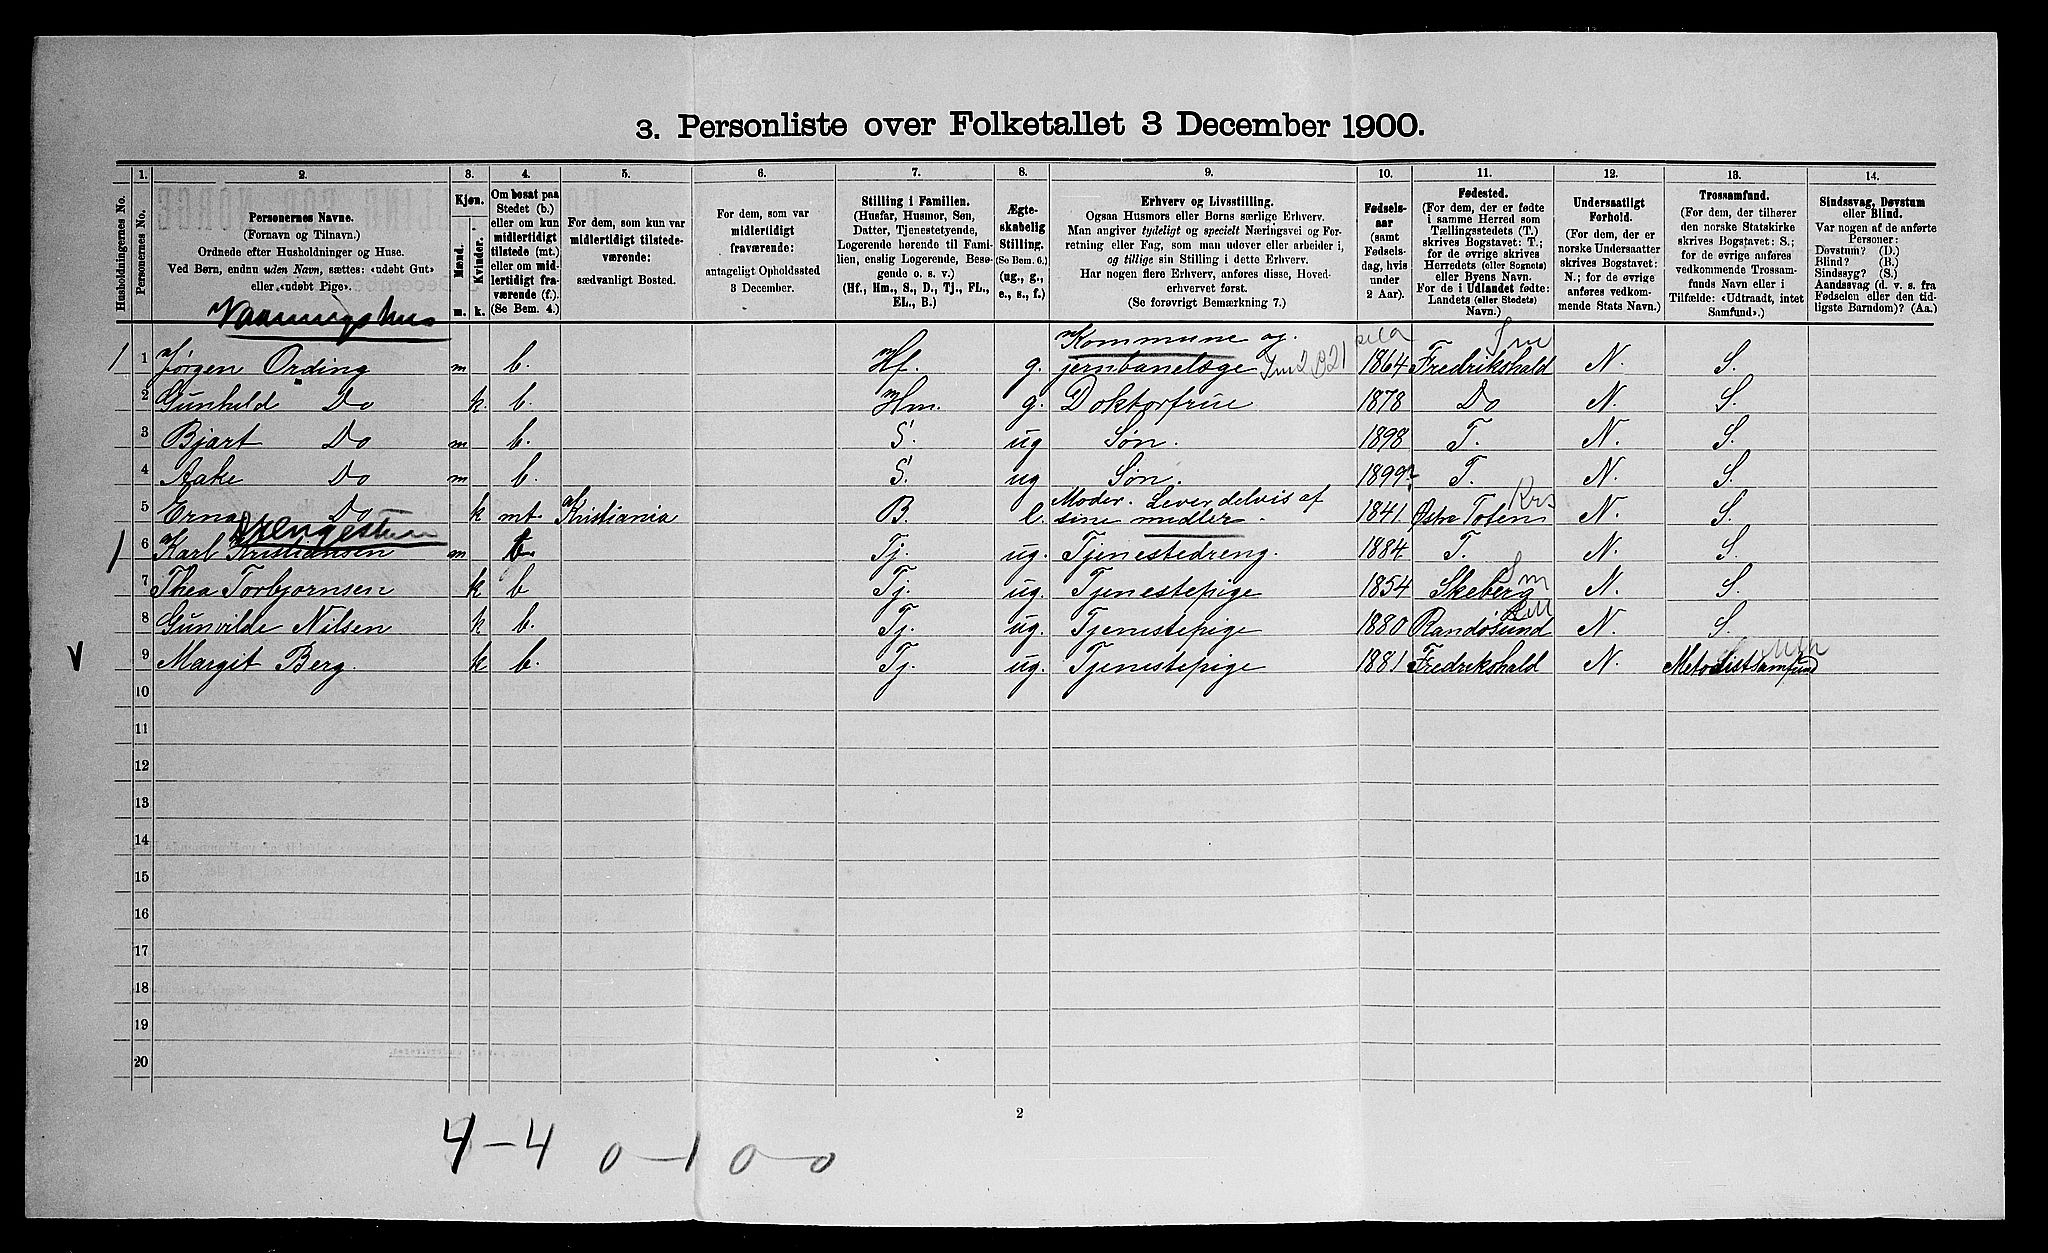 3. Personliste over Folketallet 3 December 1900.
1. 2. 3. 4. 5. 6. 7. 8. 9. 10. 11. 12. 13. 14.
Husholdningernes No.
Personernes No.
Personernes Navne.
(Fornavn og Tilnavn.)
Ordnede efter Husholdninger og Huse.
Ved Børn, endnu uden Navn, sættes: «udøbt Gut»
eller «udøbt Pige».
Kjøn.
Mænd.
Kvinder.
m. k.
Om bosat paa
Stedet (b.)
eller om kun
midlertidigt
tilstede (mt.)
eller om mid-
lertidigt fra-
værende (f.).
(Se Bem. 4.)
For dem, som kun var
midlertidigt tilstede-
værende:
sædvanligt Bosted.
For dem, som var
midlertidigt
fraværende:
antageligt Opholdssted
3 December.
Stilling i Familien.
(Husfar, Husmor, Søn,
Datter, Tjenestetyende,
Logerende hørende til Fami-
lien, enslig Logerende, Besø-
gende o. s. v.)
(Hf., Hm., S., D., Tj., FL.,
EL., B.)
Ægte-
skabelig
Stilling.
(Se Bem. 6.)
(ug., g.,
e., s., f.)
Erhverv og Livsstilling.
Ogsaa Husmors eller Børns særlige Erhverv.
Man angiver tydeligt og specielt Næringsvei og For-
retning eller Fag, som man udøver eller arbeider i,
og tillige sin Stilling i dette Erhverv.
Har nogen flere Erhverv, anføres disse, Hoved-
erhvervet først.
(Se forøvrigt Bemærkning 7.)
Fødsels-
aar
(samt
Fødsels-
dag, hvis
under
2 Aar).
Fødested.
(For dem, der er fødte
i samme Herred som
Tællingsstedets (T.)
skrives Bogstavet: T.;
for de øvrige skrives
Herredets (eller Sognets)
eller Byens Navn.
For de i Udlandet fødte:
Landets (eller Stedets)
Navn.)
Undersaatligt
Forhold.
(For dem, der er
norske Undersaatter
skrives Bogstavet:
N.; for de øvrige
anføres vedkom-
mende Stats Navn.)
Trossamfund.
(For dem, der tilhører
den norske Statskirke
skrives Bogstavet: S.;
for de øvrige anføres
vedkommende Trossam-
funds Navn eller i
Tilfælde: «Udtraadt, intet
Samfund».)
Sindssvag, Døvstum
eller Blind.
Var nogen af de anførte
Personer:
Døvstum? (D.)
Blind? (B.)
Sindssyg? (S.)
Aandssvag (d. v. s. fra
Fødselen eller den tid-
ligste Barndom)? (Aa.)
Vaaningshus
1 1 Jørgen Ording m b. Hf. g. Kommune og jernbanelæge 1864 Fredrikshald N. S.
2 Gunhild Do k. b. Hm. g. Doktorfrue 1878 Do N. S.
3 Bjart Do m b. S. ug Søn. 1898 T. N. S.
4 Aake Do m b. S. ug Søn. 1899 T. N. S.
5 Erna Do k mt. Kristiania B. Moder. Lever delvis af sine midler. 1841 Østre Toten N. S.
Drengestuen
1 6 Karl Kristiansen m b. Tj. ug. Tjenestedreng. 1884 T. N. S.
7 Thea Torbjørnsen k b Tj. ug. Tjenestepige 1854 Skeberg N. S.
8 Gunvilde Nilsen k b. Tj. ug. Tjenestepige 1880 Randøsund N. S.
V 9 Margit Berg. k b. Tj. ug. Tjenestepige 1881 Fredrikshald N. Metodistsamfund
10
11
12
13
14
15
16
17
18
19
20
2
4–4 0–1 0–0